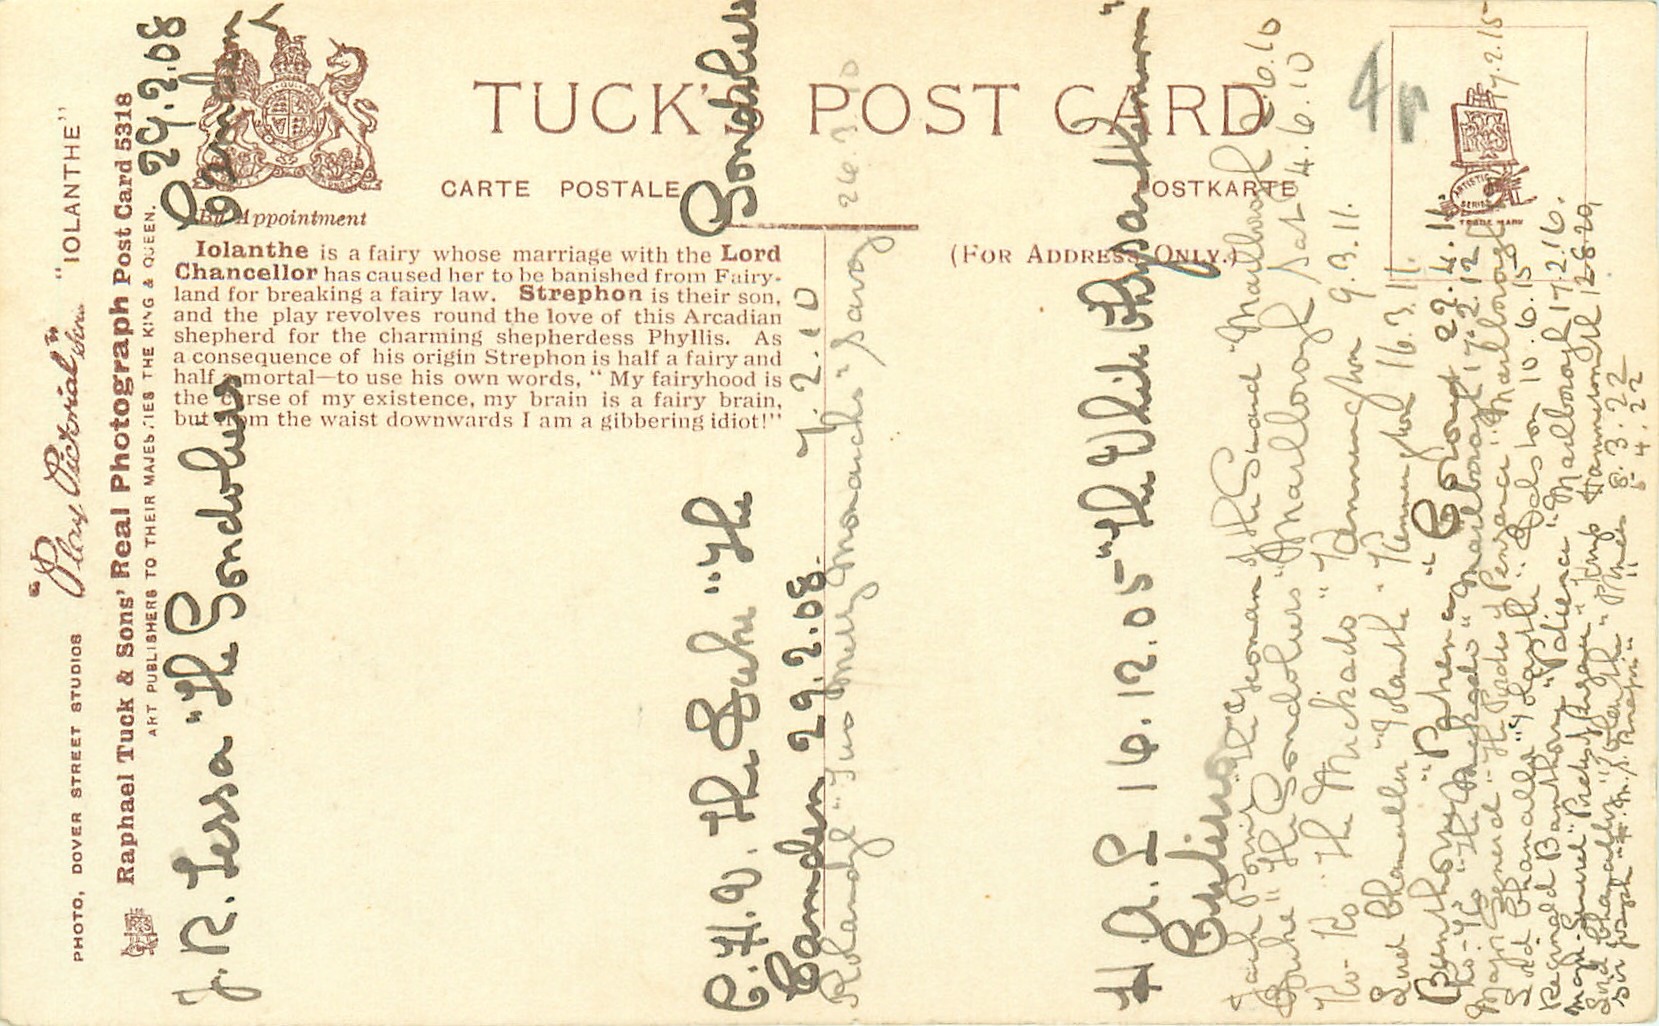 TUCK'S POST CARD
CARTE POSTALE
POSTKARTE
By Appointment
(FOR ADDRESS ONLY.)
Iolanthe is a fairy whose marriage with the Lord
Chancellor has caused her to be banished from Fairy-
land for breaking a fairy law. Strephon is their son,
and the play revolves round the love of this Arcadian
shepherd for the charming shepherdess Phyllis. As
a consequence of his origin Strephon is half a fairy and
half a mortal—to use his own words, "My fairyhood is
the curse of my existence, my brain is a fairy brain,
but from the waist downwards I am a gibbering idiot!"
PHOTO, DOVER STREET STUDIOS "Play Pictorial" "IOLANTHE"
Raphael Tuck & Sons' Real Photograph Post Card 5318
ART PUBLISHERS TO THEIR MAJESTIES THE KING & QUEEN.
29.2.08
J. R. Tessa "The Gondoliers Camden
C.H.W. The Duke "The Gondoliers
Camden 29.2.08. 7.2.10
"Two Merry Monarchs" Savoy 26.3.10
H.A.L 16.12.05 "The White Chrysanthemum"
Criterion
Jack Point "The Yeoman of the Guard" Marlborough 2.6.10
Duke "The Gondoliers" Marlborough Sat 4.6.10
Ko-Ko "The Mickado" Kennington 9.3.11.
Lord Chancellor "Iolanthe" Kennington 16.3.11.
Bunthorne "Patience" 22.4.16.
Ko-Ko "The Mickado" Marlborough 17.2.12
Major General "The Pirates of Penzance" Marlborough 19.2.15
Lord Chancellor "Iolanthe" Dalston 10.6.15
Reginald Bunthorne "Patience" Marlborough 17.2.16.
King Hammersmith 12.8.20
Lord Chancellor "Iolanthe" Princes 8.3.22
Sir Joseph "H.M.S. Pinafore" " 5.4.22
4p
ARTISTIC
SERIES
TRADE MARK